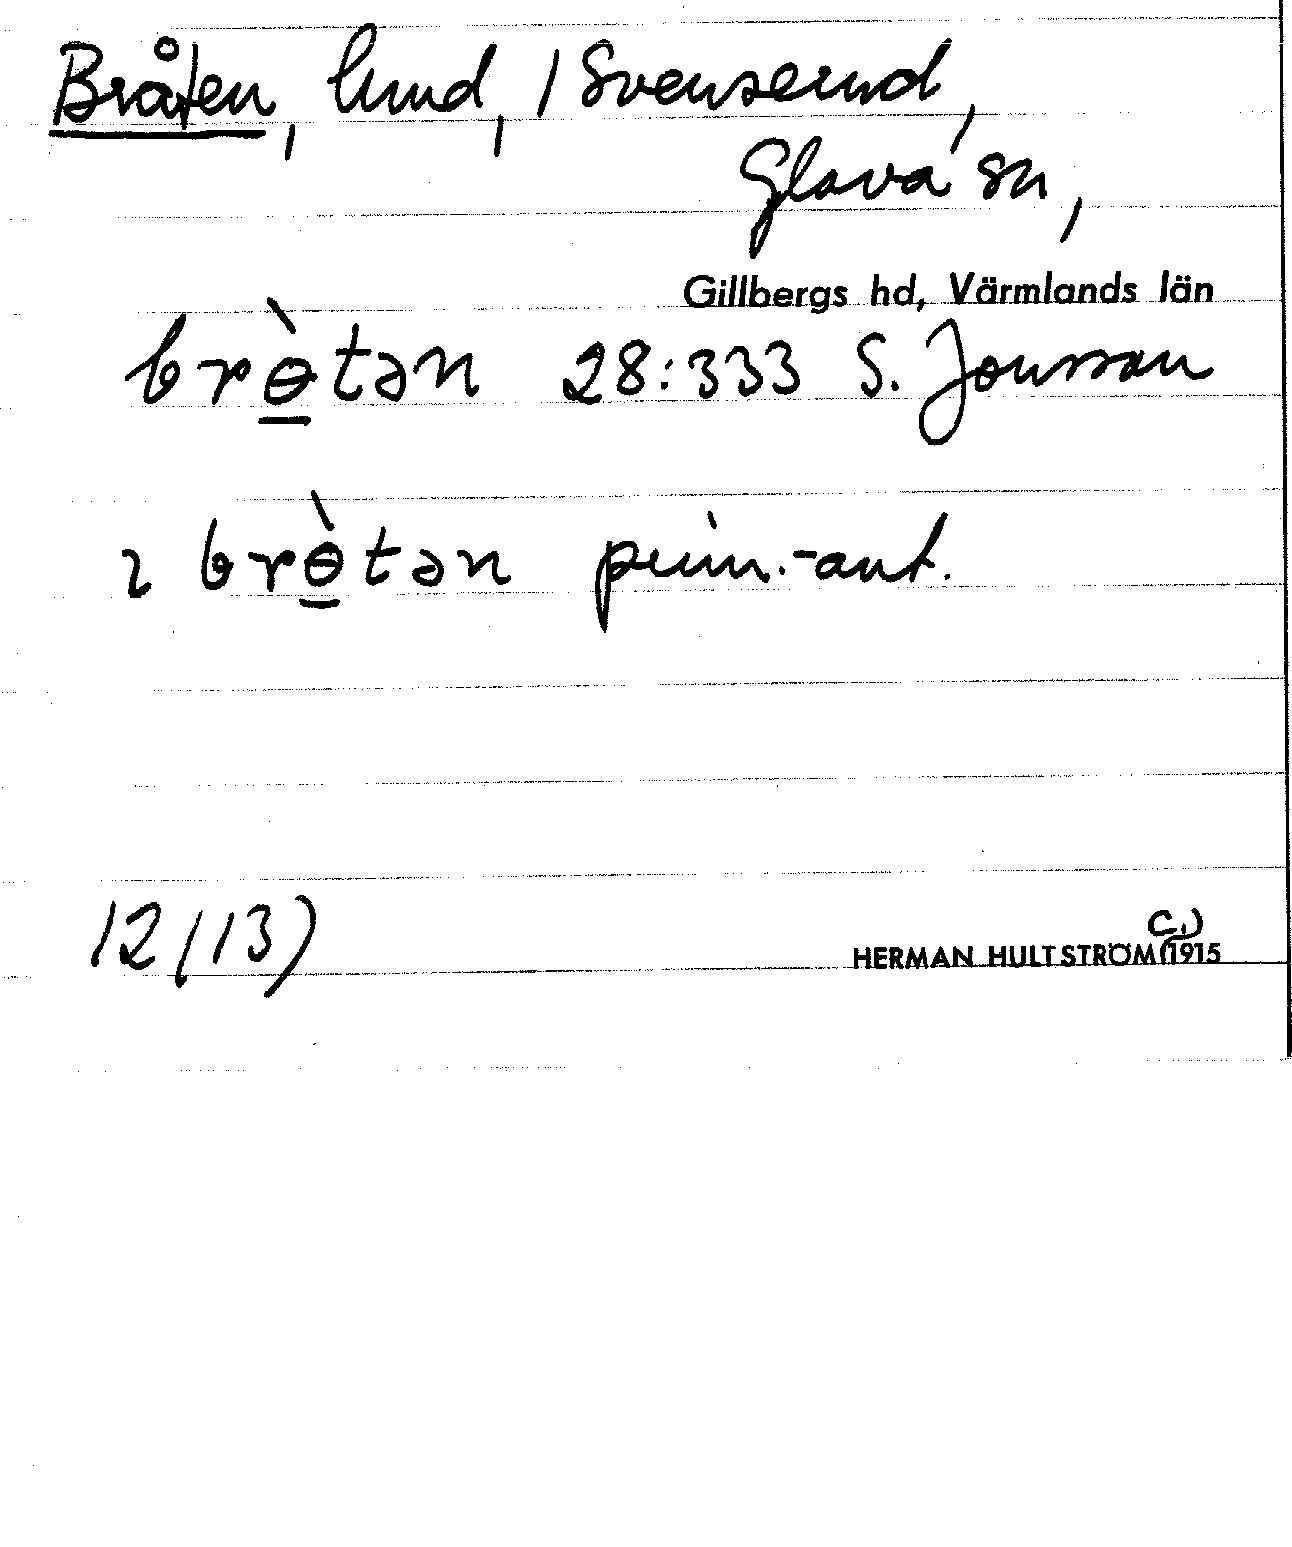 Bråten, lund, / Svenserud,
Glava sn,
Gillbergs hd, Värmlands län
brɵ̱̀tən 28:333 S. Jonsson
ɩ brɵ̱̀tən prim.-ant.
12 (13)
HERMAN HULTSTRÖM (c.) 1915